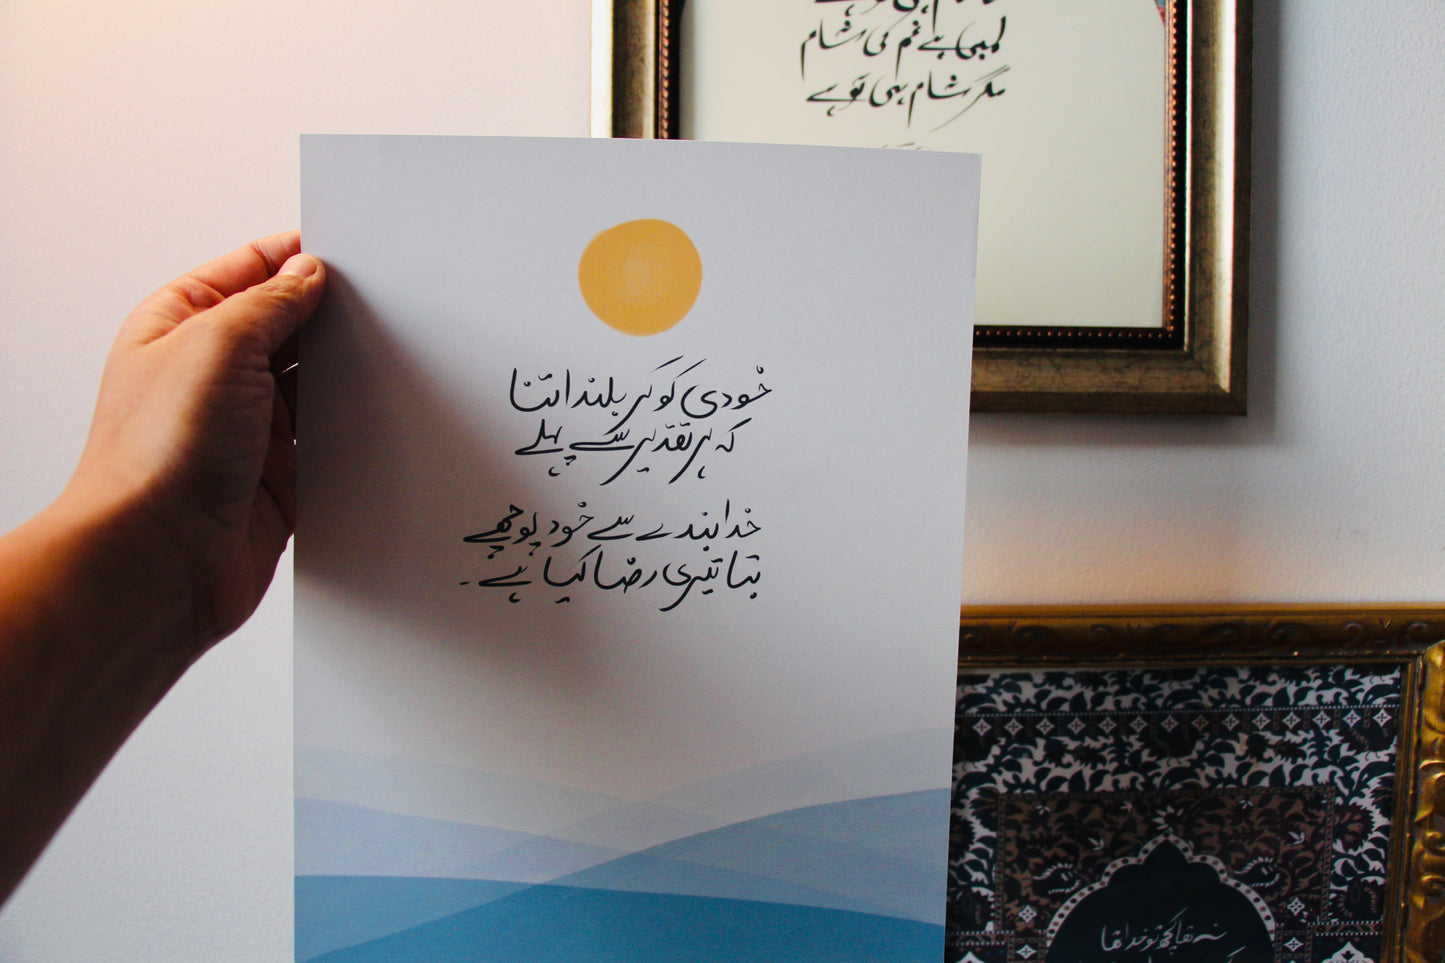 لمبی ہے غم کی شام
مگر شام ہی تو ہے
خودی کو کر بلند اتنا
کہ ہر تقدیر سے پہلے
خدا بندے سے خود پوچھے
بتا تیری رضا کیا ہے۔
نہ تھا کچھ تو خدا تھا